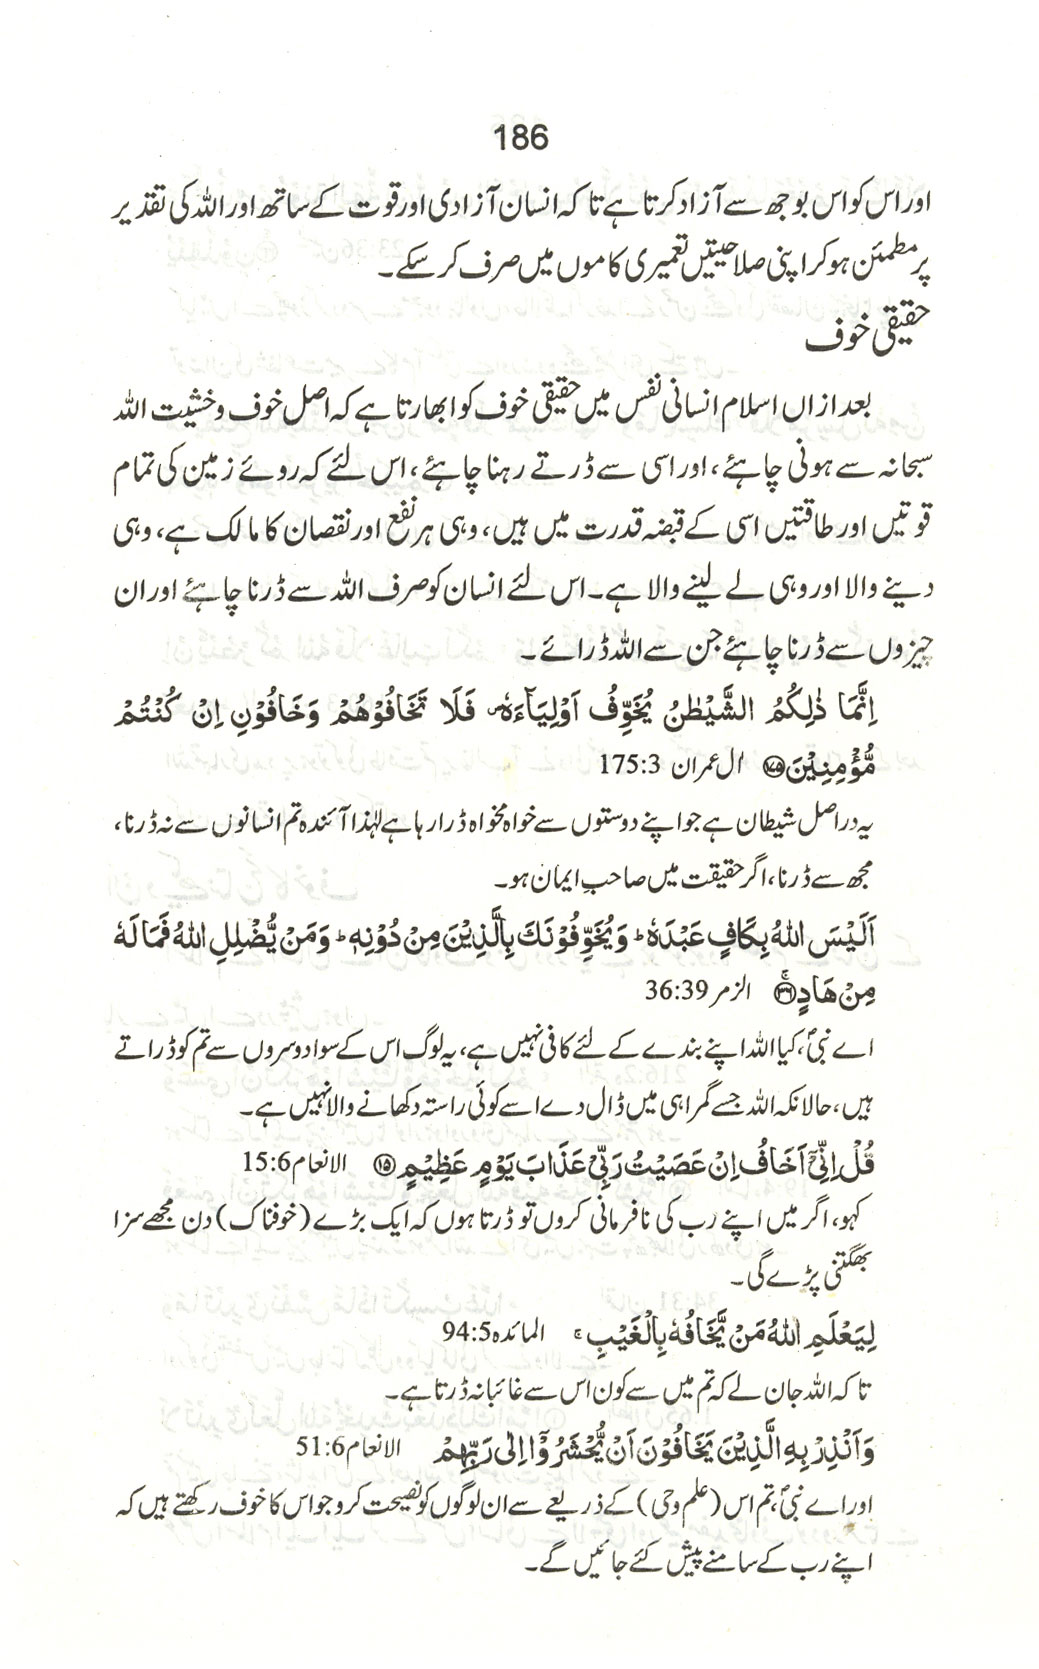 186
اور اس کو اس بوجھ سے آزاد کرتا ہے تا کہ انسان آزادی اور قوت کے ساتھ اور اللہ کی تقدیر
پر مطمئن ہو کر اپنی صلاحیتیں تعمیری کاموں میں صرف کر سکے۔
حقیقی خوف
بعد ازاں اسلام انسانی نفس میں حقیقی خوف کو ابھارتا ہے کہ اصل خوف و خشیت اللہ
سبحانہ سے ہونی چاہئے، اور اسی سے ڈرتے رہنا چاہئے، اس لئے کہ روئے زمین کی تمام
قوتیں اور طاقتیں اسی کے قبضہ قدرت میں ہیں، وہی ہر نفع اور نقصان کا مالک ہے، وہی
دینے والا اور وہی لے لینے والا ہے۔ اس لئے انسان کو صرف اللہ سے ڈرنا چاہئے اور ان
چیزوں سے ڈرنا چاہئے جن سے اللہ ڈرائے۔
اِنَّمَا ذٰلِكُمُ الشَّيْطٰنُ يُخَوِّفُ اَوْلِيَآءَهٗ ۖ فَلَا تَخَافُوْهُمْ وَخَافُوْنِ اِنْ كُنْتُمْ
مُّؤْمِنِيْنَ ﴿۱۷۵﴾ اٰل عمران 175:3
یہ دراصل شیطان ہے جو اپنے دوستوں سے خواہ مخواہ ڈرا رہا ہے لہٰذا آئندہ تم انسانوں سے نہ ڈرنا،
مجھ سے ڈرنا، اگر حقیقت میں صاحبِ ایمان ہو۔
اَلَيْسَ اللّٰهُ بِكَافٍ عَبْدَهٗ ؕ وَيُخَوِّفُوْنَكَ بِالَّذِيْنَ مِنْ دُوْنِهٖ ؕ وَمَنْ يُّضْلِلِ اللّٰهُ فَمَا لَهٗ
مِنْ هَادٍ ﴿۳۶﴾ۚ الزمر 36:39
اے نبیؐ، کیا اللہ اپنے بندے کے لئے کافی نہیں ہے، یہ لوگ اس کے سوا دوسروں سے تم کو ڈراتے
ہیں، حالانکہ اللہ جسے گمراہی میں ڈال دے اسے کوئی راستہ دکھانے والا نہیں ہے۔
قُلْ اِنِّىْٓ اَخَافُ اِنْ عَصَيْتُ رَبِّىْ عَذَابَ يَوْمٍ عَظِيْمٍ ﴿۱۵﴾ الانعام 15:6
کہو، اگر میں اپنے رب کی نافرمانی کروں تو ڈرتا ہوں کہ ایک بڑے (خوفناک) دن مجھے سزا
بھگتنی پڑے گی۔
لِيَعْلَمَ اللّٰهُ مَنْ يَّخَافُهٗ بِالْغَيْبِ ۚ المائدہ 94:5
تا کہ اللہ جان لے کہ تم میں سے کون اس سے غائبانہ ڈرتا ہے۔
وَاَنْذِرْ بِهِ الَّذِيْنَ يَخَافُوْنَ اَنْ يُّحْشَرُوْٓا اِلٰى رَبِّهِمْ الانعام 51:6
اور اے نبیؐ، تم اس (علم وحی) کے ذریعے سے ان لوگوں کو نصیحت کرو جو اس کا خوف رکھتے ہیں کہ
اپنے رب کے سامنے پیش کئے جائیں گے۔